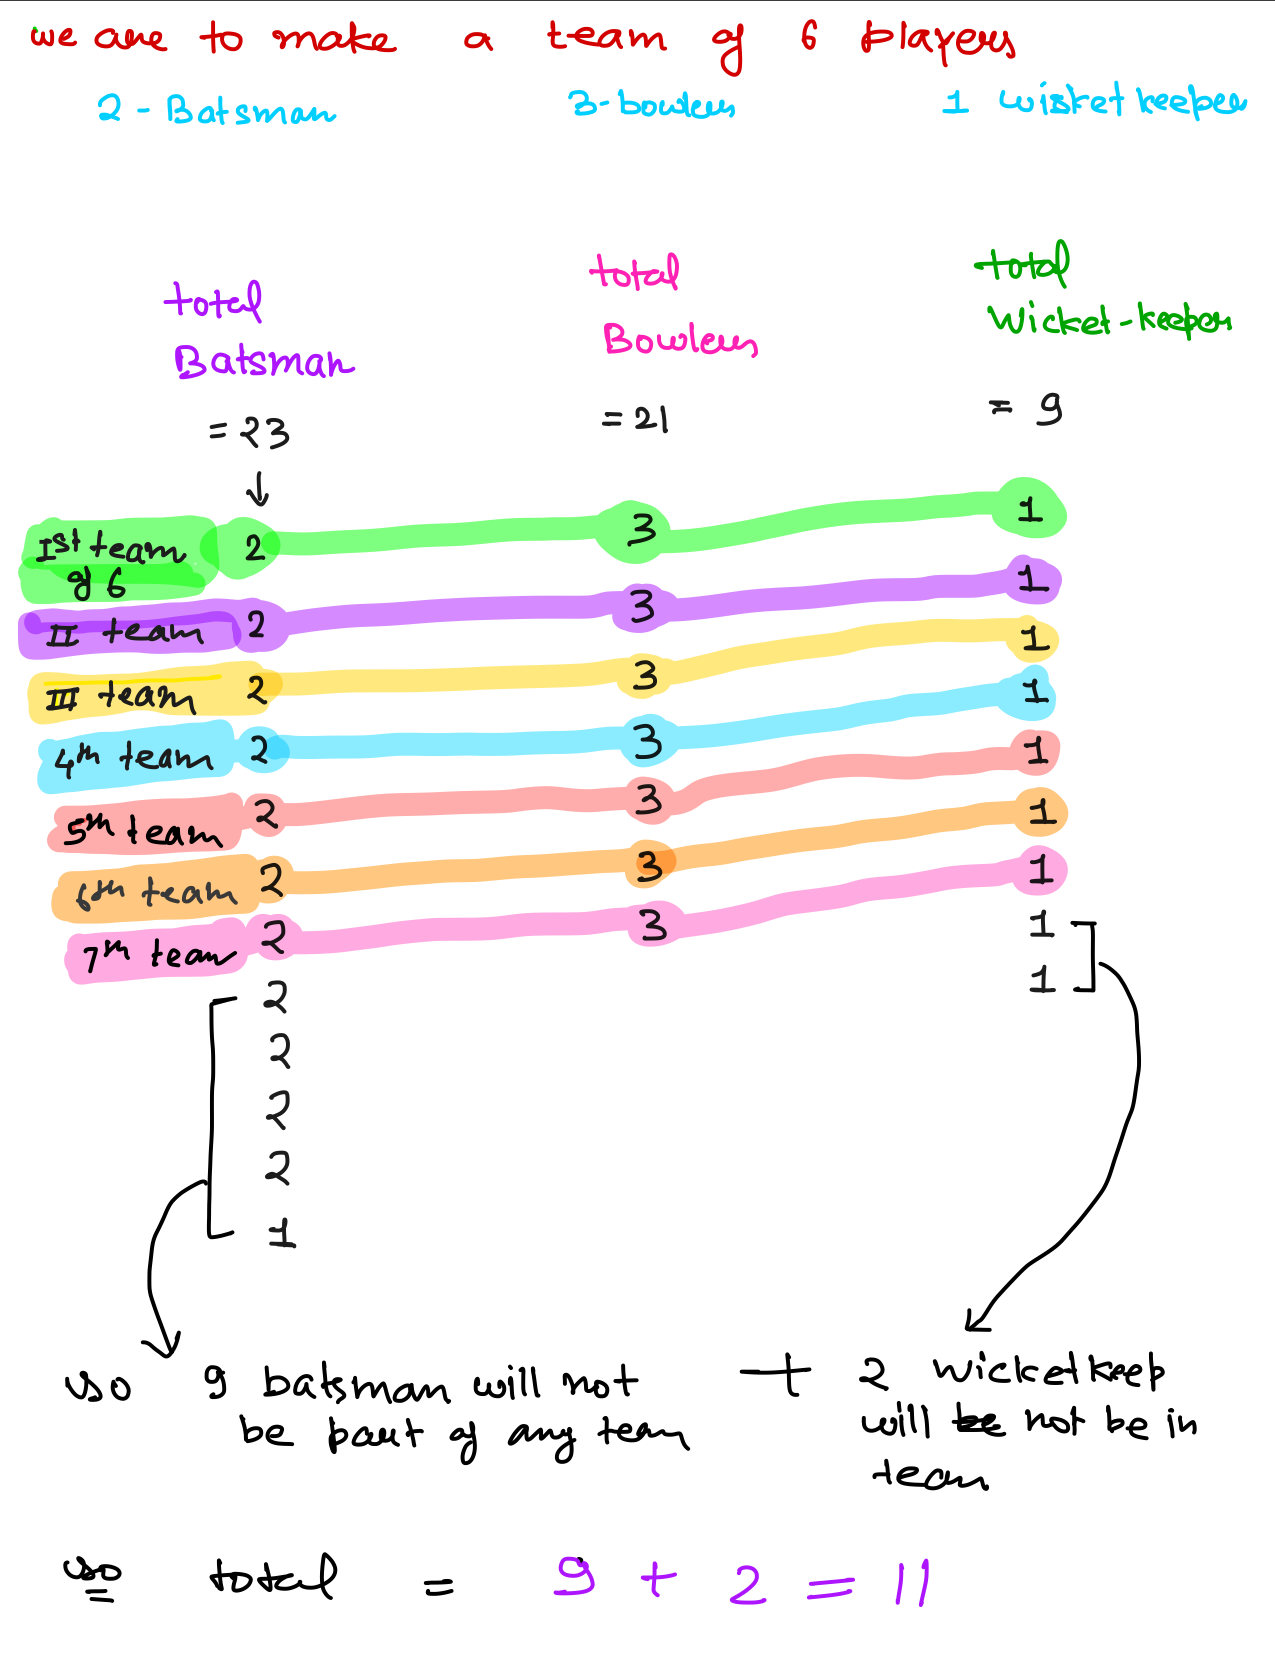 we are to make a team of 6 players
2 - Batsman 3-bowlers 1 wisketkeeper
total total total
Batsman Bowlers Wicket-keeper
= 23 = 21 = 9
↓
Ist team of 6 2 3 1
II team 2 3 1
III team 2 3 1
4th team 2 3 1
5th team 2 3 1
6th team 2 3 1
7th team 2 3 1
1
2 1
2
2
2
1
so 9 batsman will not + 2 wicketkeep
be part of any team will be not be in
team
so total = 9 + 2 = 11